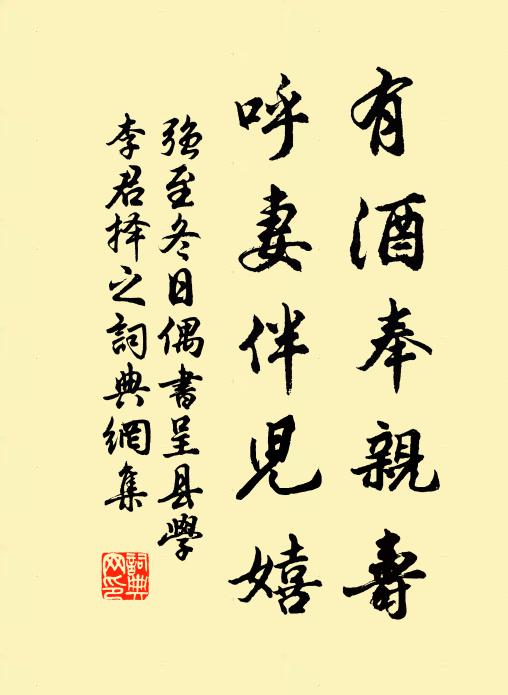 有酒奉親壽
呼妻伴児嬉
强至冬日偶書呈县學
李君择之詞典網集
詞典网印